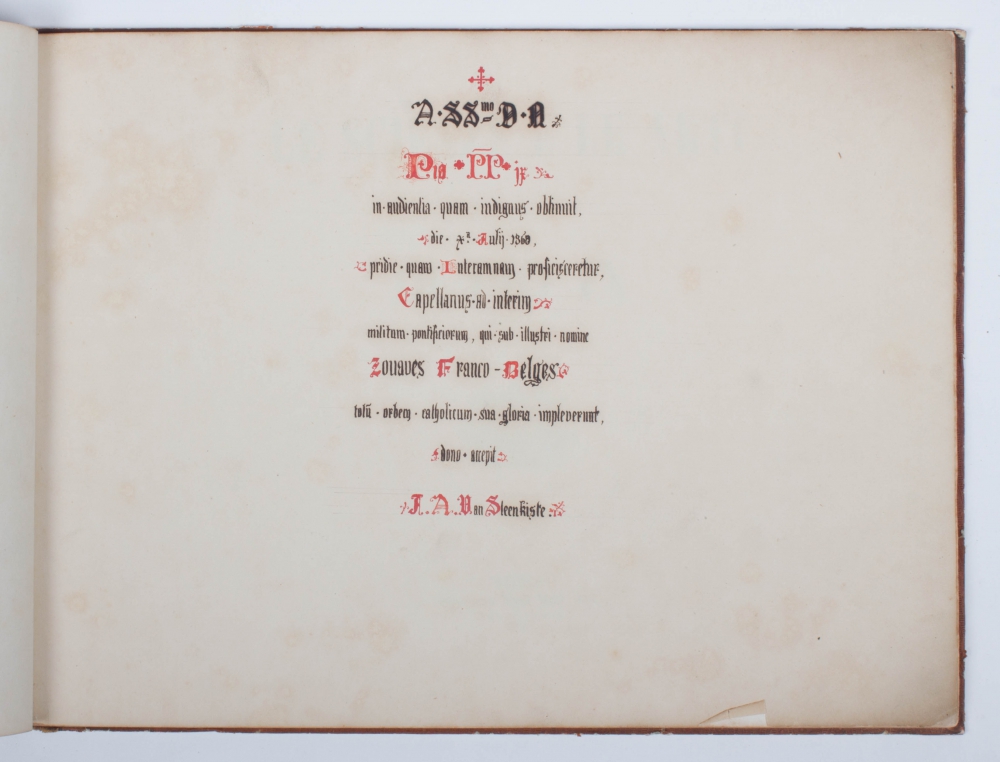 A·SSmo D·N
Pio · PP · jx
in·audientia · quam · indignus · obtinuit,
die · Xa · Julij · 1860,
pridie · quam · Interamnam · proficisceretur,
Capellanus·ad·interim
militum·pontificiorum, qui·sub·illustri·nomine
Zouaves Franco-Belges
totū · orbem · catholicum·sua·gloria·impleverunt,
dono · accepit
J.A.Van Steenkiste